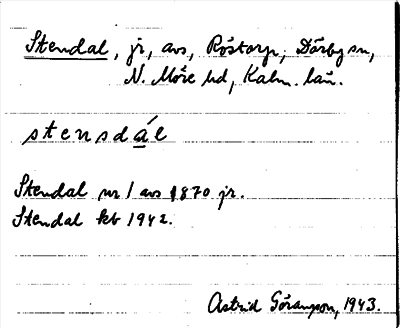 Stendal, jr, avs, Röstorp, Dörby sn,
N. Möre hd, Kalm. län.
stensdál
Stendal nr 1 avs 1870 jr.
Stendal kb 1942.
Astrid Göranson, 1943.